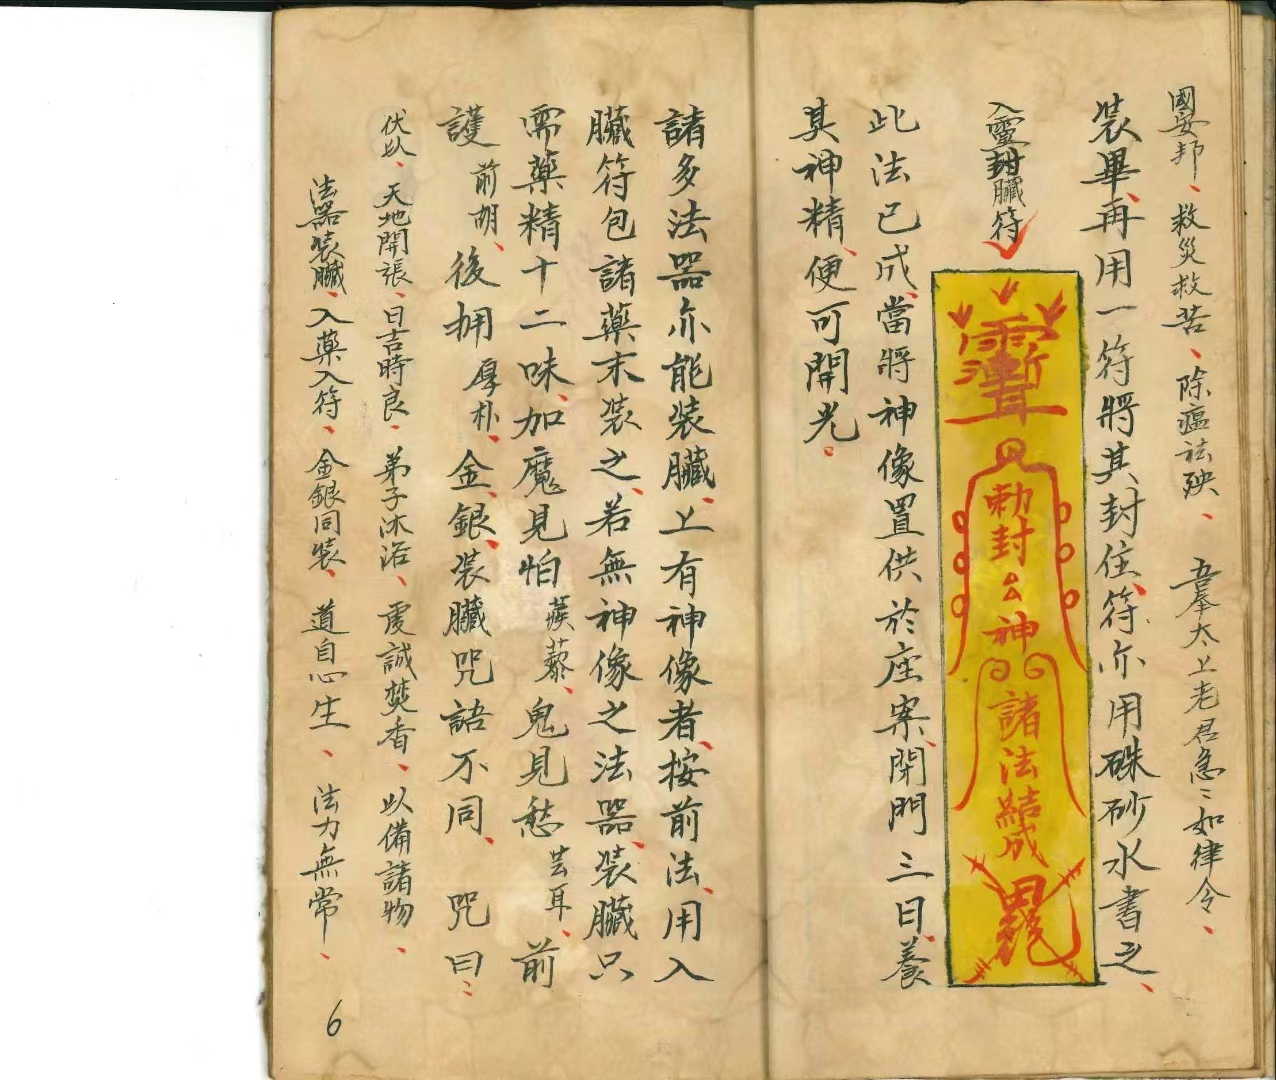 國安邦、救災救苦、除瘟祛殃、吾奉太上老君急〻如律令、
裝畢、再用一符將其封住、符亦用硃砂水書之、
入靈封臟符
勅封公神
諸法結成
此法已成、當將神像置供於座案、閉門三日、養
其神精、便可開光。
諸多法器亦能裝臟、上有神像者、按前法、用入
臟符包諸藥末裝之、若無神像之法器、裝臟只
需藥精十二味、加魔見怕蒺藜、鬼見愁芸耳、前
護前胡、後拥厚朴、金、銀、裝臟咒語不同、咒曰：
伏以、天地開張、日吉時良、弟子沐浴、虔誠焚香、以備諸物、
法器裝臟、入藥入符、金銀同裝、道自心生、法力無常、
6